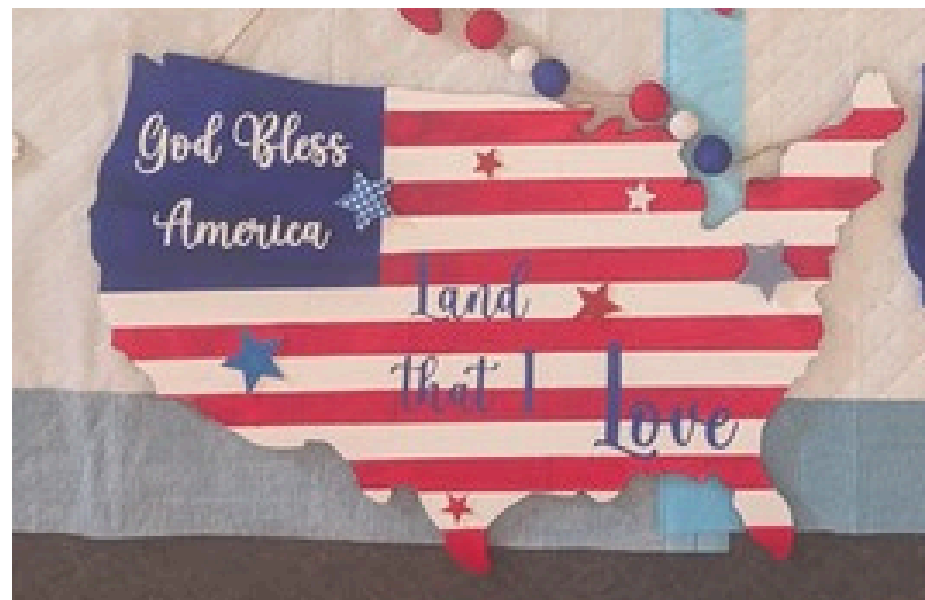 God Bless
America
Land
that I Love